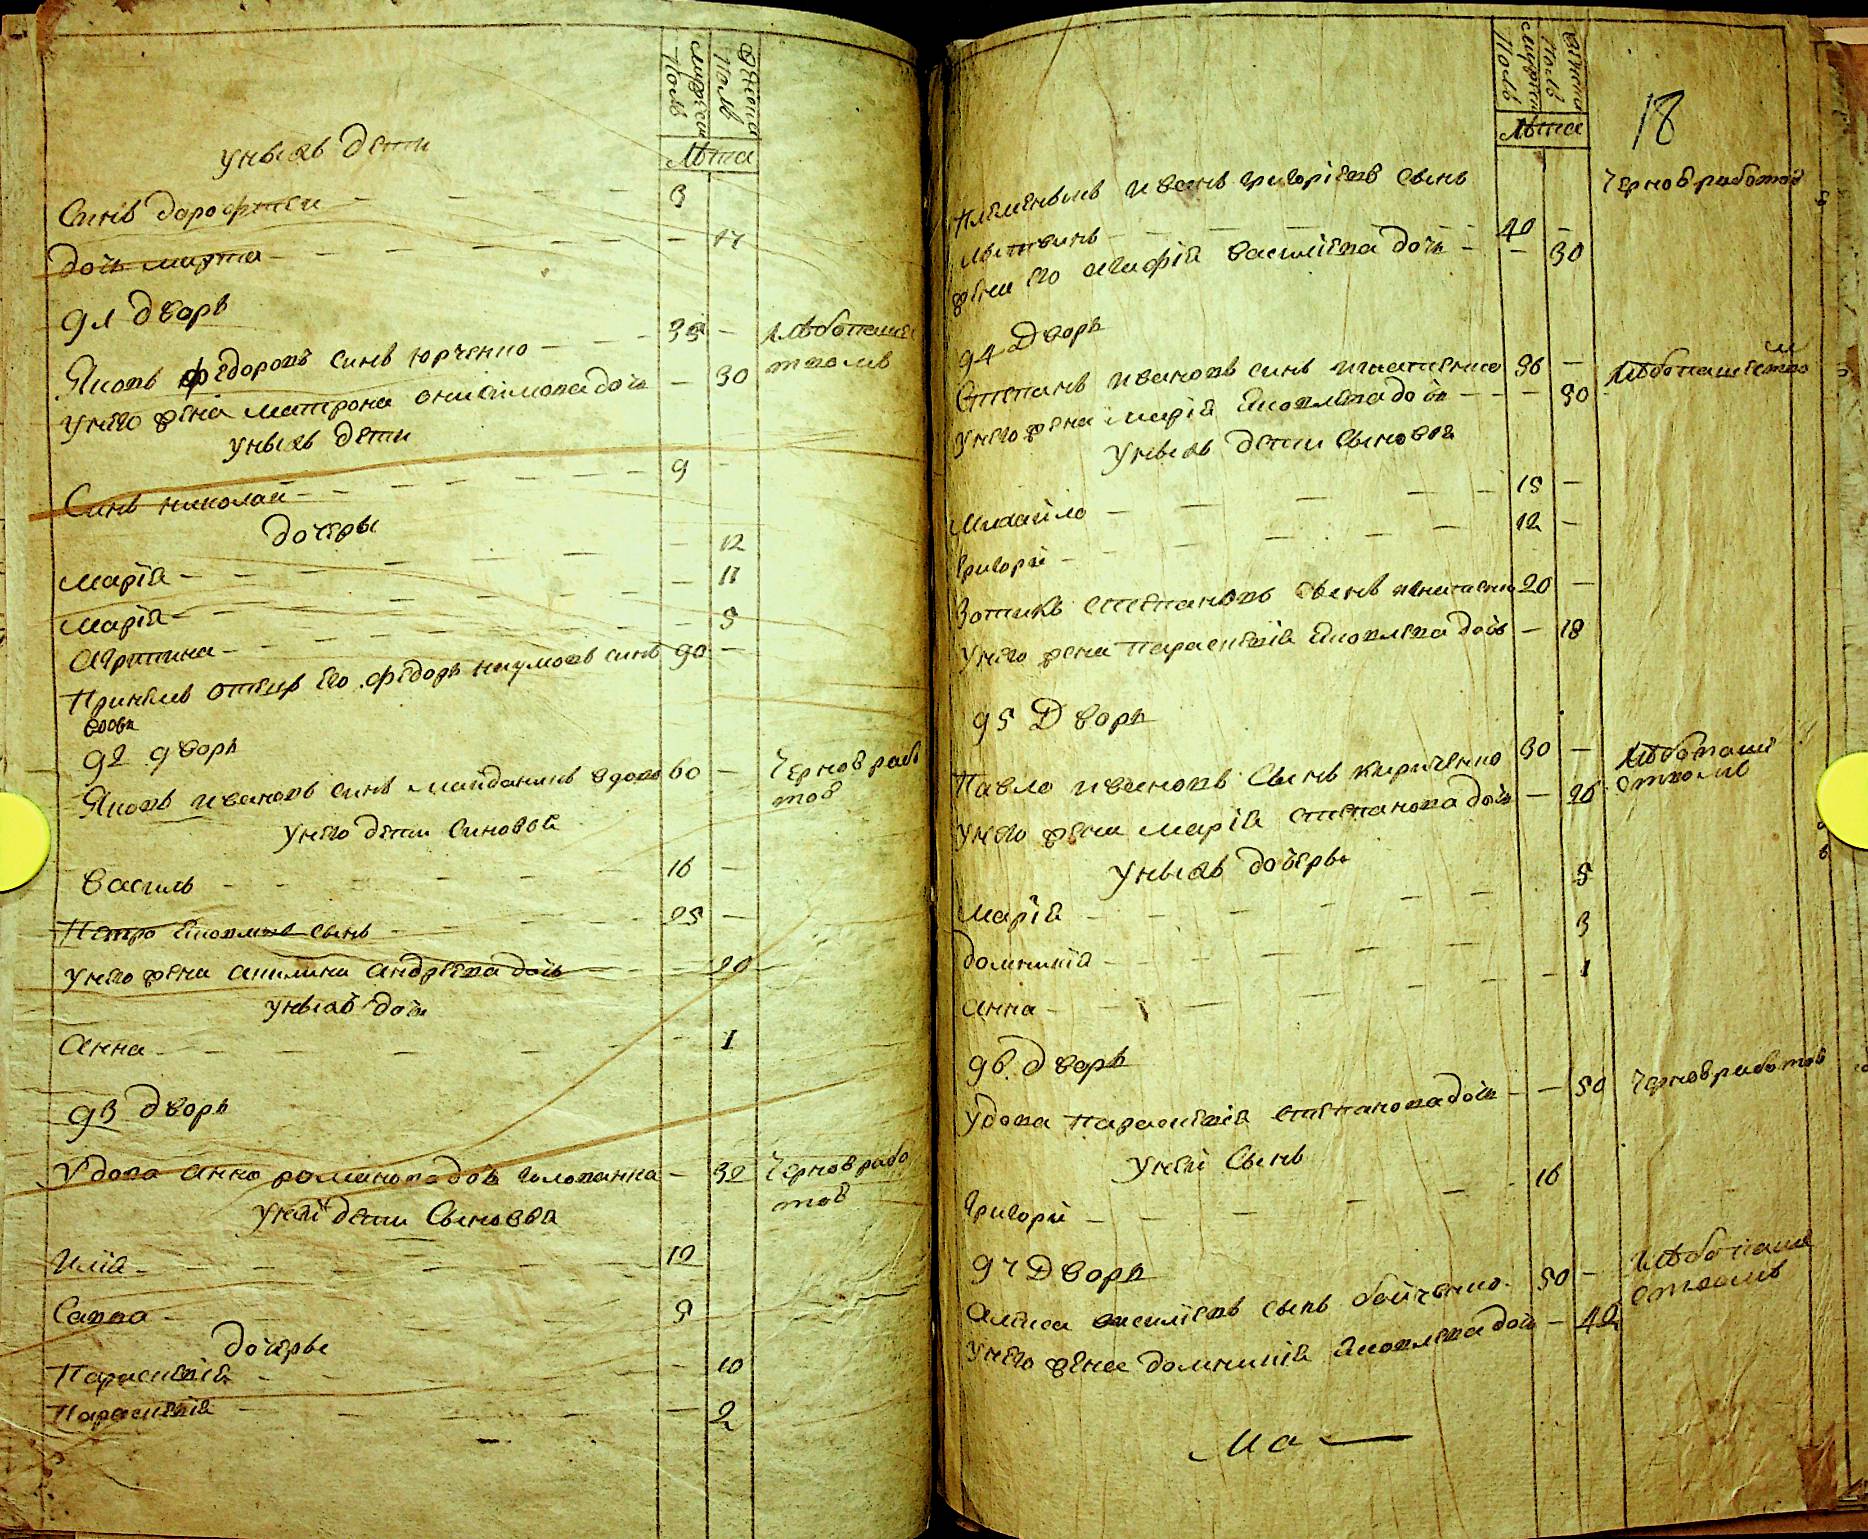 мужеска Полъ
Жѣнска Полъ
Лѣта
У ныхъ дети
Синъ дорофтей — 3
Дочъ марта — 17
91 дворъ
Яковъ федоровъ синъ юрченко — 35 — хлѣбопаше
ством
У него жена матрона онисимова дочъ — 30
У ныхъ дети
Синъ николай — 9
дочеры
Марія — 12
Марія — 11
Агрипина — 5
Принемъ отецъ его федоръ наумовъ синъ 90 —
вдовъ
92 дворъ
Яковъ ивановъ синъ майданикъ вдовъ 60 — Чернов рабо
той
У него дети Синовей
Василь — 16 —
Петро Яковлевъ сынъ — 25 —
У него жена акилина андреева дочъ — 20
У ныхъ дочъ
Анна — 1
93 дворъ
Удова анна романова дочъ — 32 Чернов рабо
той
У ней дети Сыновей
Илія — 12
Савва — 9
дочеры
Параскевія — 10
Параскевія — 2
мужеска Полъ
Жѣнска Полъ
Лѣта
18
Племеныкъ иванъ григоріевъ сынъ Черновработой
литвинъ — 40 —
жена его агафія василіева дочъ — 30
94 Дворъ
Степанъ ивановъ синъ игнатенко 36 — хлѣбопашество
м
У него жена марія Яковлева дочъ — 30
У ныхъ дети Сыновей
Михайло — 15 —
Григорій — 12 —
Зотикъ степановъ сынъ игнатенко 20 —
У него жена параскевія Яковлева дочъ — 18
95 Дворъ
Павло ивановъ сынъ кириченко 30 — хлѣбопаше
ством
У него жена марія степанова дочъ — 26
У ныхъ дочеры
Марія — 5
Домникія — 3
Анна — 1
96 дворъ
Удова параскевія степанова дочъ — 50 Черновработой
У ней Сынъ
Григорій — 16
97 Дворъ
Алекса василіевъ сынъ бойченко 50 — хлѣбопаше
ством
У него жена домникія Яковлева дочъ — 42